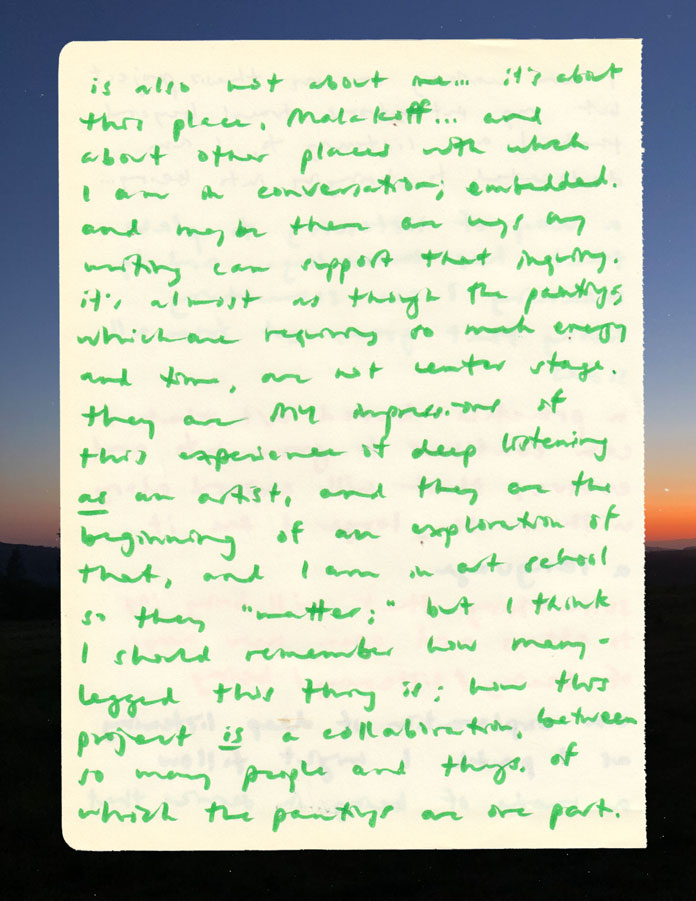 is also not about me... it's about
this place, Malakoff... and
about other places with which
I am in conversation; embedded.
and maybe there are ways my
writing can support that inquiry.
it's almost as though the paintings
which are requiring so much energy
and time, are not center stage.
they are MY impressions of
this experience of deep listening
as an artist, and they are the
beginning of an exploration of
that, and I am in art school
so they "matter;" but I think
I should remember how many-
legged this thing is; how this
project is a collaboration, between
so many people and things, of
which the paintings are one part.